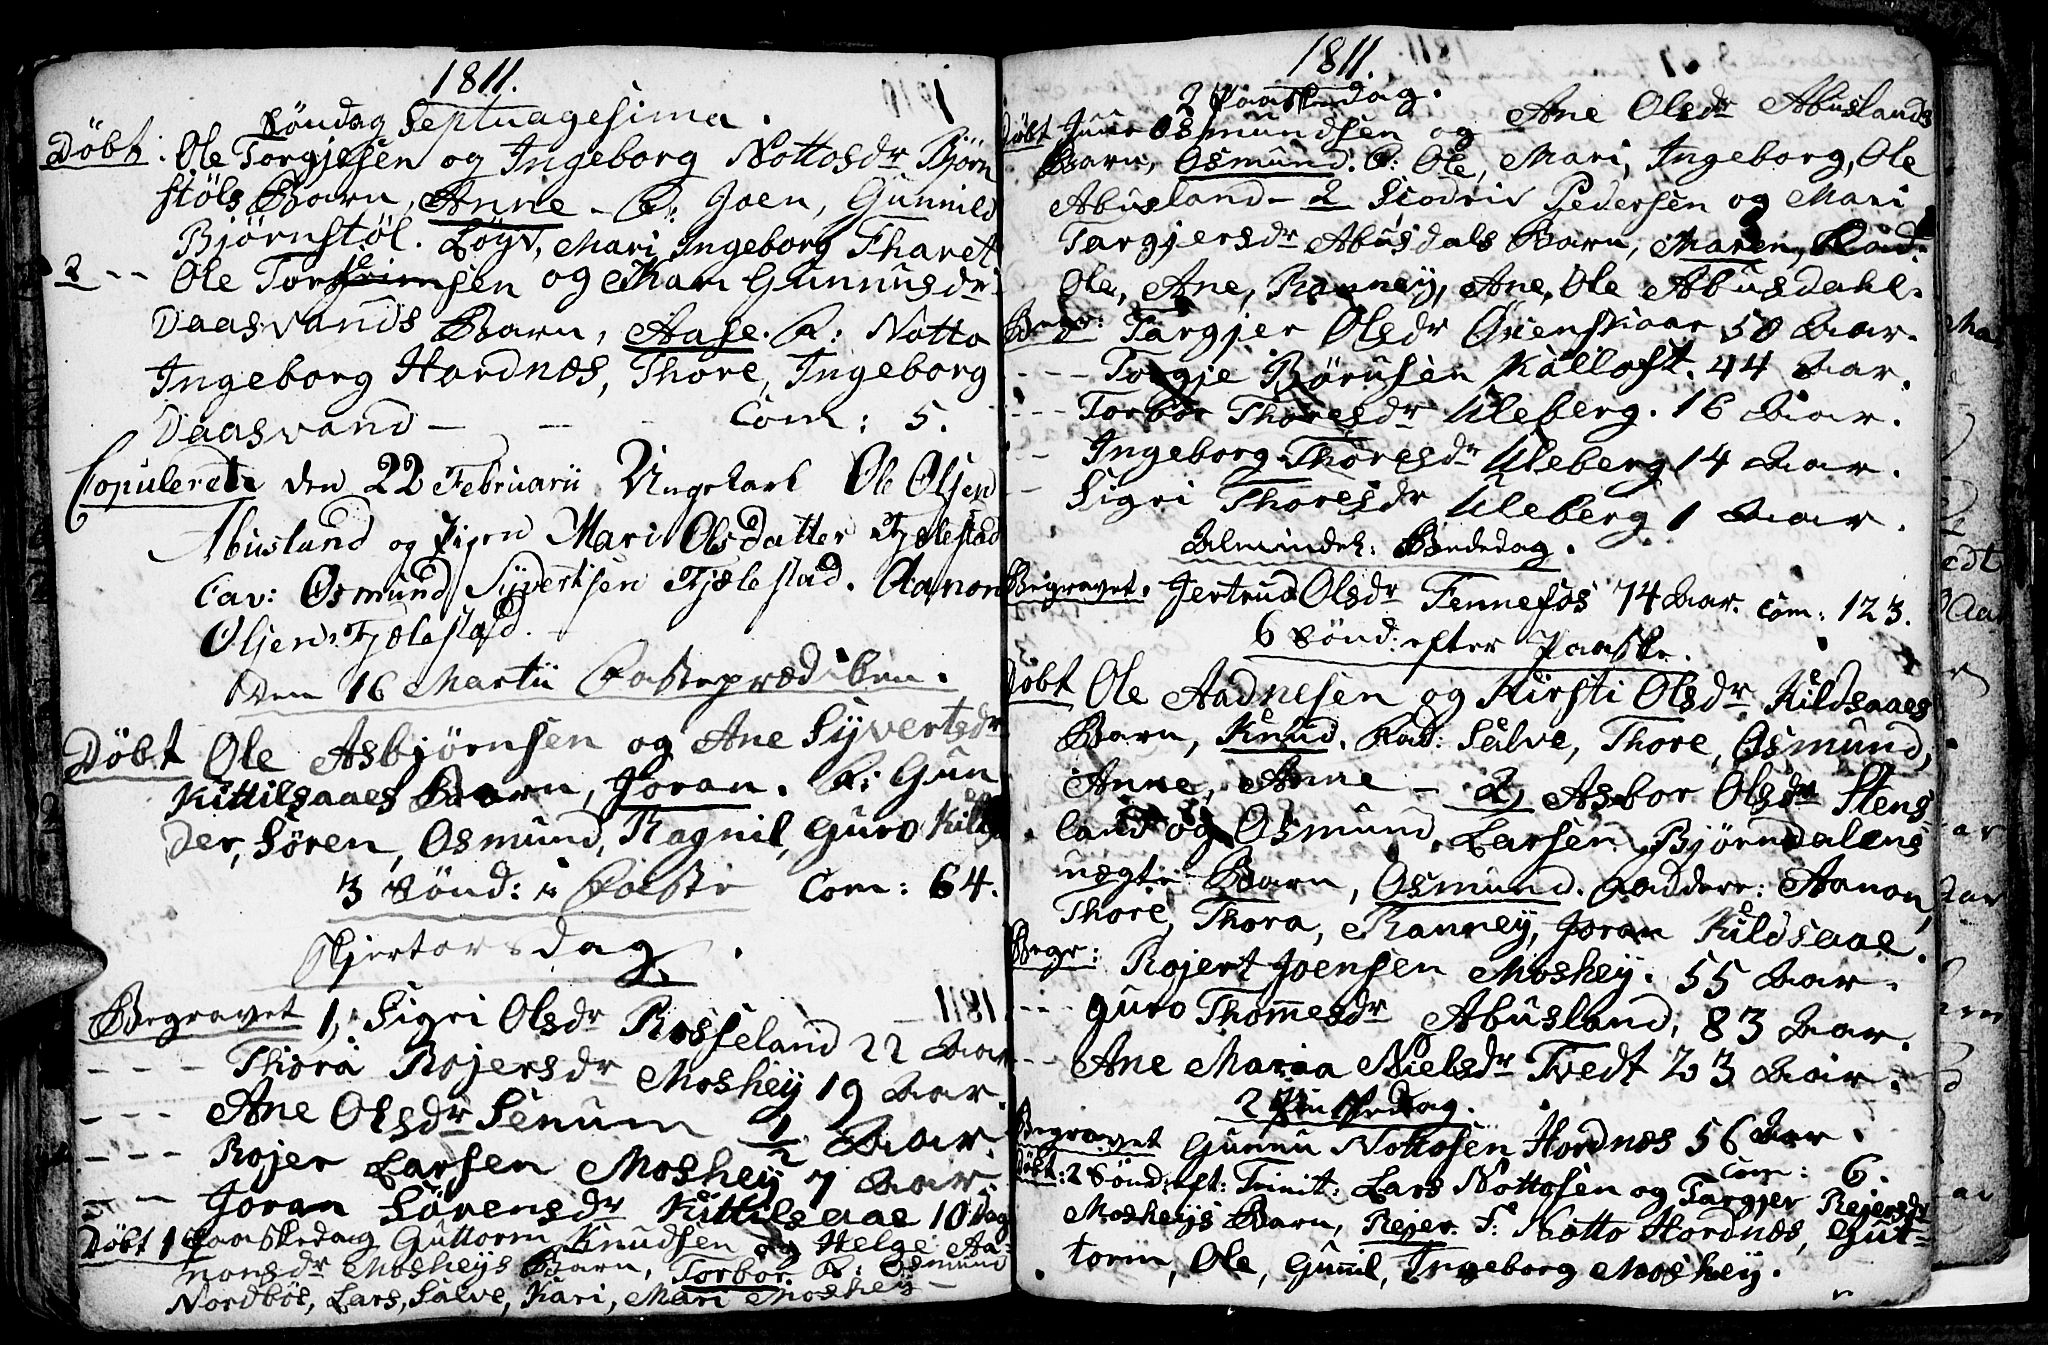 1811.
Söndag Septuagesima.
Döbt. Ole Torgjesen og Ingeborg Nottosdr Bjørn
støls Barn, Anne - F: Joen, Gunnild
Bjørnstøl. Løgv, Mari, Ingeborg Tharet
2 -- Ole Torsensen og Mari Gunnusdr
Daasvands Barn, Aase. F: Notto
Ingeborg Hordnæs, Thore, Ingeborg
Daasvand - - - Com: 5.
Copulerede den 22 Februarii Ungekarl Ole Olsen
Abusland og Pigen Mari Olsdatter Fjælestad
Cav: Osmund Syvertsen Fjælestad. Aanon
Olsen Fjælestad.
Den 16 Martii Fasteprædiken.
Döbt Ole Asbjørnsen og Ane Syvertsdr
Kittilsaaes Barn, Joran. F: Gun
der, Sören, Osmund, Ragnil, Guro Kittils
3 Sönd: i Faste Com: 64.
Skjertorsdag.
Begravet 1, Sigri Olsdr Rosseland 22 Aar
- - - Thora Rojersdr Moshey 19 Aar.
- - - Ane Olsdr Senum 1/2 Aar.
- - - Rojer Larsen Moshey 7 Aar.
- - - Joran Sörensdr Kittilsaae 10 Dag
Döbt 1 Paaskedag Guttorm Knudsen og Helge Aa-
nonsdr Mosheys Barn, Torbor. F: Osmund
Nordbøe, Lars, Salve, Kari, Mari Moshey -
1811.
2 Paaskedag.
Döbt Juur Osmundsen og Ane Olsdr Abuslands
Barn, Osmund. F: Ole, Mari, Ingeborg, Ole
Abusland - 2 Siodriv Pedersen og Mari
Targjersdr Abusdals Barn, Maren, Fad:
Ole, Ane, Ranney, Ane, Ole Abusdahl.
Begr: Targjer Olsdr Øvenskaar 50 Aar.
- - - Torgje Börusen Kalloft. 44 Aar.
- - - Torbor Thoresdr Uleberg. 16 Aar.
- - Ingeborg Thoresdr Uleberg 14 Aar.
- Sigri Thoresdr Uleberg 1 Aar.
Almindel: Bededag.
Begravet. Jertrud Olsdr Fennefos 74 Aar. Com: 123.
6 Sönd: efter Paaske.
Döbt Ole Aadnesen og Kirsti Olsdr Kildsaaes
Barn, Knud. Fad: Salve, Thore, Osmund,
Anne, Anne - 2, Asbor Olsdr Stens
land og Osmund Larsen Bjørndalens
uægte Barn, Osmund. Faddere: Aanon,
Thore, Thora, Ranney, Joran Kildsaae.
Begr: Rojert Joensen Moshey. 55 Aar.
- - Guro Thommesdr Abusland, 83 Aar.
- - - Ane Maria Nielsdr Tvedt 23 Aar.
2 Pinsedag.
Begravet Gunnu Nottosen Hordnæs 56 Aar.
Com: 6.
Döbt: 2 Sönd: eft: Trinit: Lars Nottosen og Targjer Rejersdr
Mosheys Barn, Rejer. F: Notto Hordnæs, Gut-
torm, Ole, Gunnil, Ingeborg Moshey.